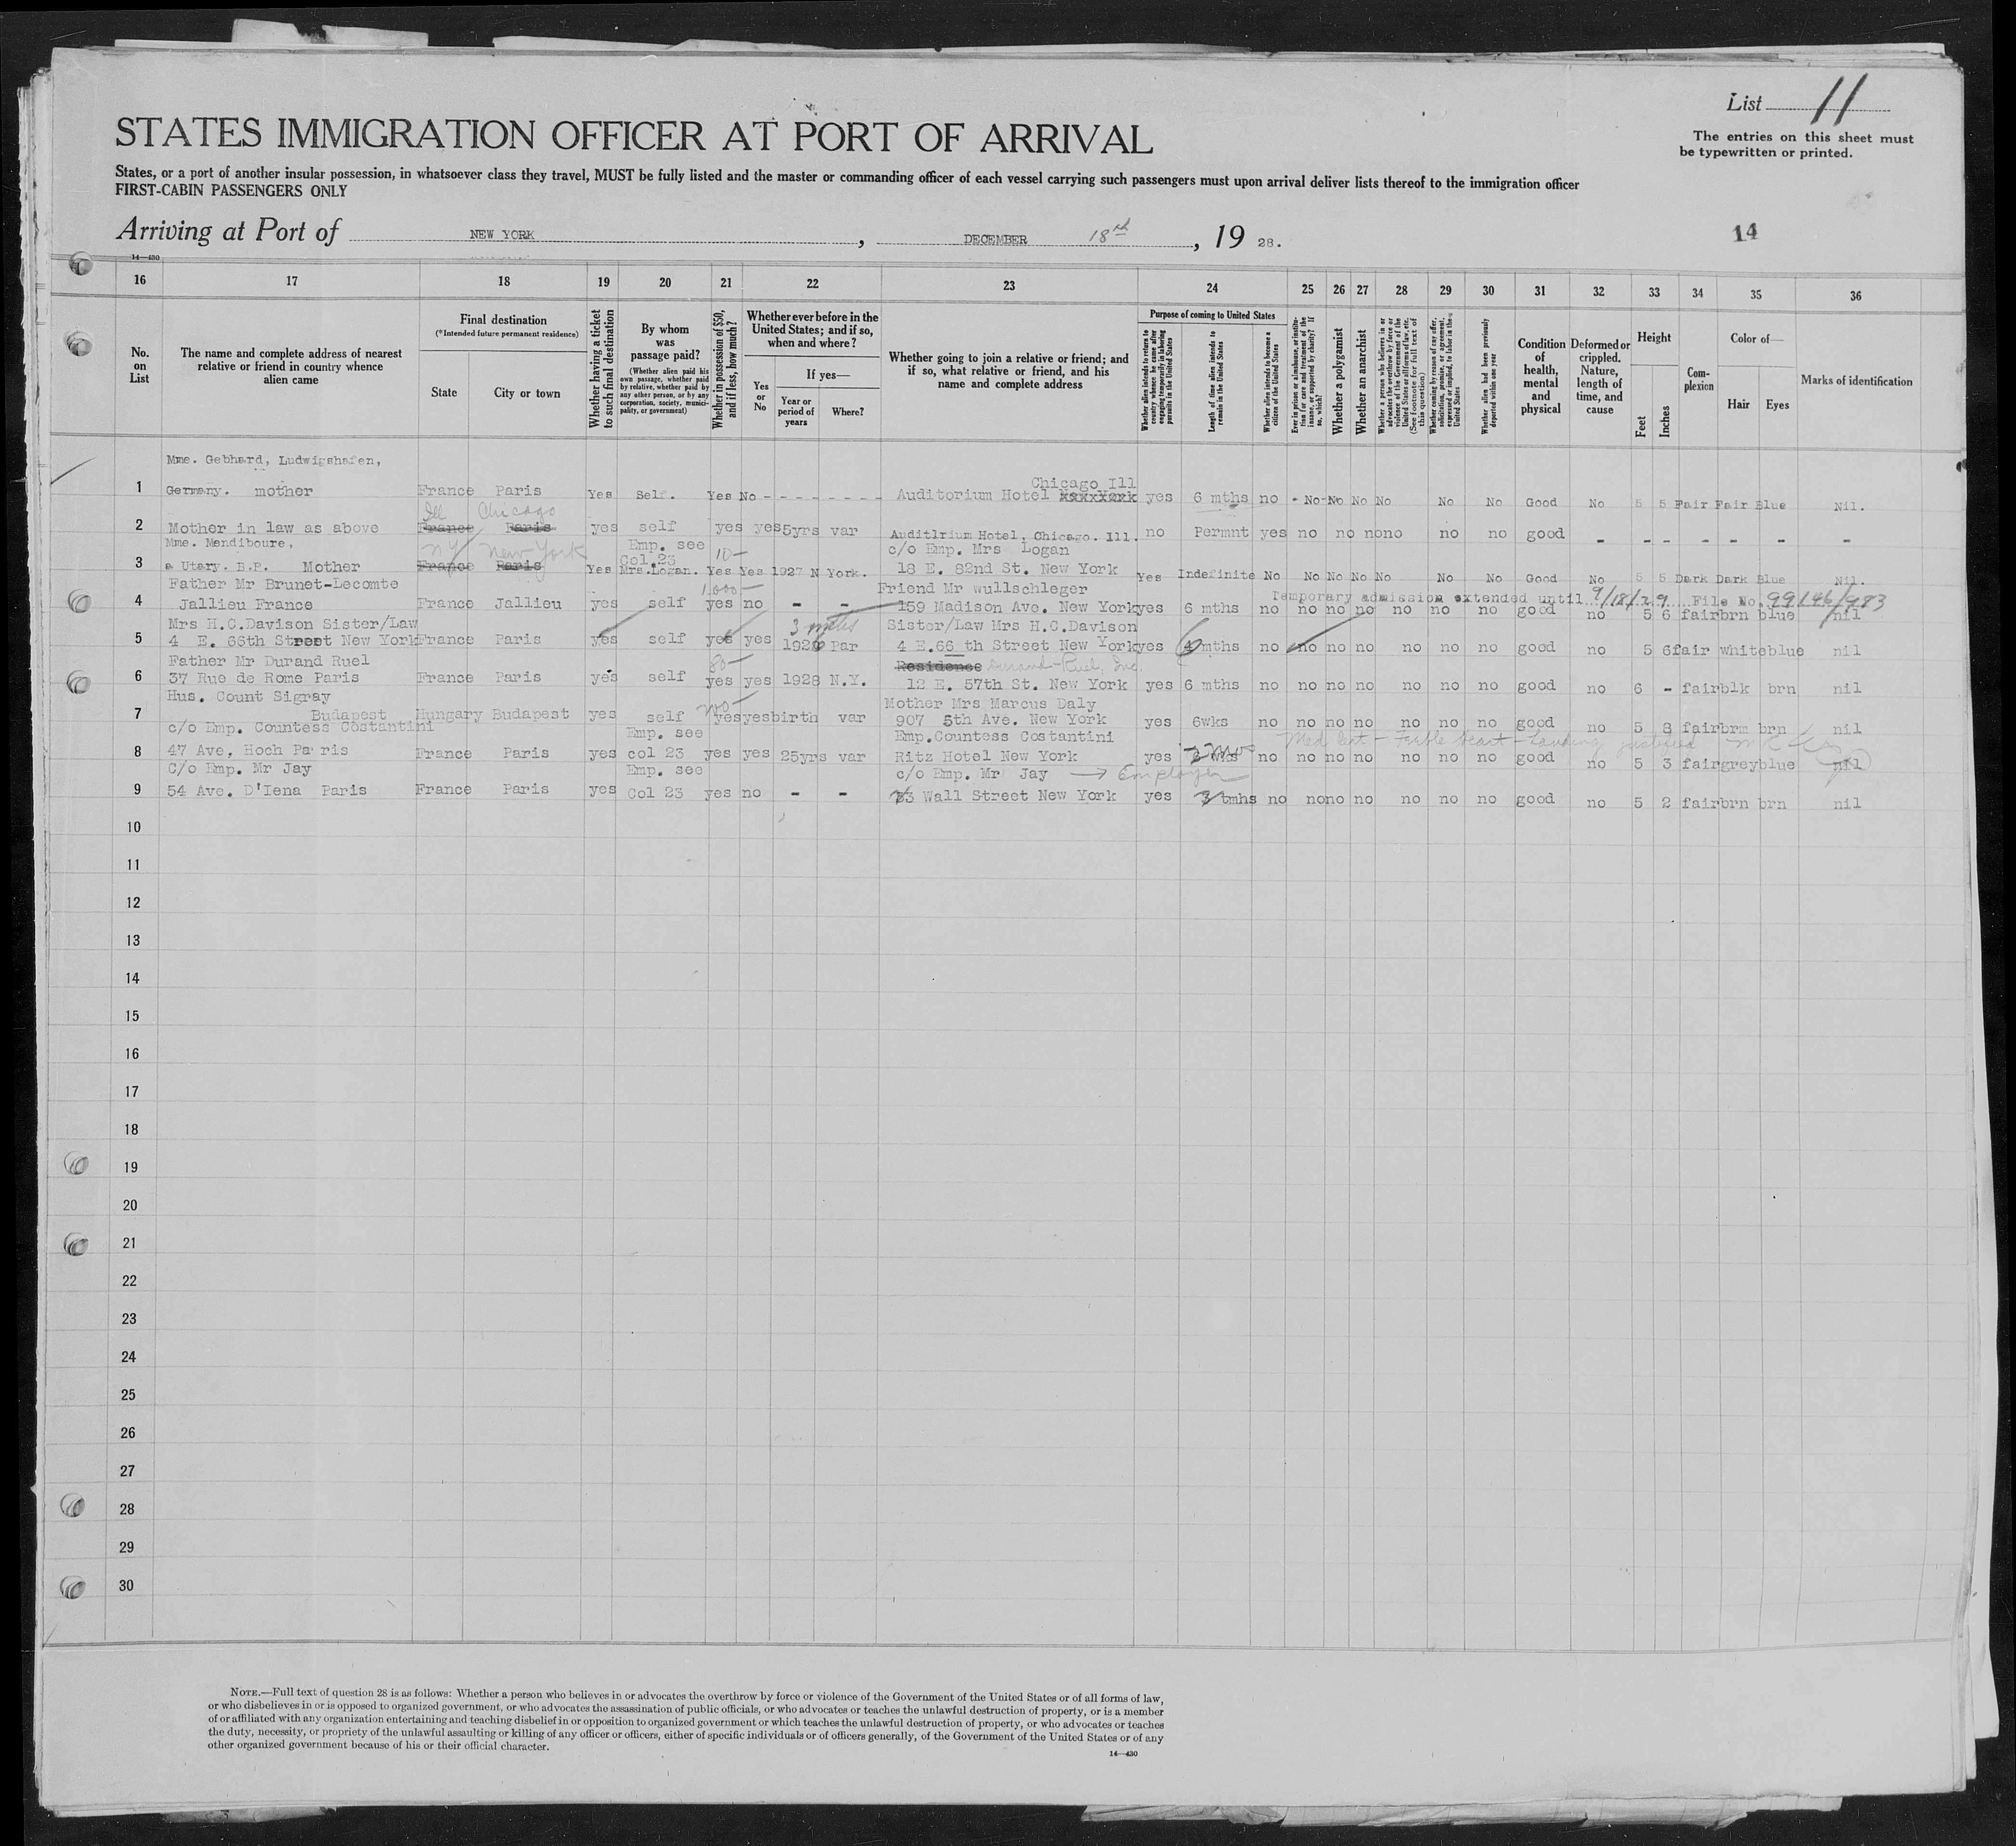 List 11
The entries on this sheet must
be typewritten or printed.
STATES IMMIGRATION OFFICER AT PORT OF ARRIVAL
States, or a port of another insular possession, in whatsoever class they travel, MUST be fully listed and the master or commanding officer of each vessel carrying such passengers must upon arrival deliver lists thereof to the immigration officer
FIRST-CABIN PASSENGERS ONLY
Arriving at Port of NEW YORK , DECEMBER 18 , 19 28.
14
14—430
16 17 18 19 20 21 22 23 24 25 26 27 28 29 30 31 32 33 34 35 36
No. on List
The name and complete address of nearest relative or friend in country whence alien came
Final destination
(*Intended future permanent residence)
State
City or town
Whether having a ticket to such final destination
By whom was passage paid?
(Whether alien paid his own passage, whether paid by relative, whether paid by any other person, or by any corporation, society, municipality, or government)
Whether in possession of $50, and if less, how much?
Whether ever before in the United States; and if so, when and where?
Yes or No
If yes—
Year or period of years
Where?
Whether going to join a relative or friend; and if so, what relative or friend, and his name and complete address
Purpose of coming to United States
Whether alien intends to return to country whence he came after engaging temporarily in laboring pursuits in the United States
Length of time alien intends to remain in the United States
Whether alien intends to become a citizen of the United States
Ever in prison or almshouse, or institution for care and treatment of the insane, or supported by charity? If so, which?
Whether a polygamist
Whether an anarchist
Whether a person who believes in or advocates the overthrow by force or violence of the Government of the United States or all forms of law, etc. (See footnote for full text of this question)
Whether coming by reason of any offer, solicitation, promise, or agreement, expressed or implied, to labor in the United States
Whether alien had been previously deported within one year
Condition of health, mental and physical
Deformed or crippled. Nature, length of time, and cause
Height
Feet
Inches
Complexion
Color of—
Hair
Eyes
Marks of identification
Mme. Gebhard, Ludwigshafen,
Chicago Ill
1 Germany. mother France Paris Yes Self. Yes No - - - - - - - Auditorium Hotel yes 6 mths no - No No No No No No Good No 5 5 Fair Fair Blue Nil.
Ill Chicago
2 Mother in law as above France Paris yes self yes yes 5yrs var Auditlrium Hotel, Chicago. Ill. no Permnt yes no no no no no no good - - - - - - -
Mme. Mendiboure, NY New York Emp. see Col.23 10- c/o Emp. Mrs Logan
3 a Utary. B.P. Mother France Paris Yes Mrs.Logan. Yes Yes 1927 N York. 18 E. 82nd St. New York Yes Indefinite No No No No No No No Good No 5 5 Dark Dark Blue Nil.
Father Mr Brunet-Lecomte 1000- Friend Mr wullschleger Temporary admission extended until 9/18/29 File No. 99146/983
4 Jallieu France France Jallieu yes self yes no - - 159 Madison Ave. New York yes 6 mths no no no no no no no good no 5 6 fair brn blue nil
Mrs H.C.Davison Sister/Law 3 mths Sister/Law Mrs H.C.Davison
5 4 E. 66th Street New York France Paris yes self yes yes 1928 Par 4 E.66 th Street New York yes mths no no no no no no no good no 5 6 fair white blue nil
Father Mr Durand Ruel 80- Residence Durand-Ruel, Inc.
6 37 Rue de Rome Paris France Paris yes self yes yes 1928 N.Y. 12 E. 57th St. New York yes 6 mths no no no no no no no good no 6 - fair blk brn nil
Hus. Count Sigray 200- Mother Mrs Marcus Daly
7 Budapest Hungary Budapest yes self yes yes birth var 907 5th Ave. New York yes 6wks no no no no no no no good no 5 8 fair brm brn nil
c/o Emp. Countess Costantini Emp. see Emp.Countess Costantini Med Cert - Feeble heart - Landing justified
8 47 Ave, Hoch Pa ris France Paris yes col 23 yes yes 25yrs var Ritz Hotel New York yes no no no no no no no good no 5 3 fair grey blue nil
C/o Emp. Mr Jay Emp. see c/o Emp. Mr Jay → Employer
9 54 Ave. D'Iena Paris France Paris yes Col 23 yes no - - 73 Wall Street New York yes 3 tmhs no no no no no no no good no 5 2 fair brn brn nil
10
11
12
13
14
15
16
17
18
19
20
21
22
23
24
25
26
27
28
29
30
NOTE.—Full text of question 28 is as follows: Whether a person who believes in or advocates the overthrow by force or violence of the Government of the United States or of all forms of law,
or who disbelieves in or is opposed to organized government, or who advocates the assassination of public officials, or who advocates or teaches the unlawful destruction of property, or is a member
of or affiliated with any organization entertaining and teaching disbelief in or opposition to organized government or which teaches the unlawful destruction of property, or who advocates or teaches
the duty, necessity, or propriety of the unlawful assaulting or killing of any officer or officers, either of specific individuals or of officers generally, of the Government of the United States or of any
other organized government because of his or their official character.
14—430